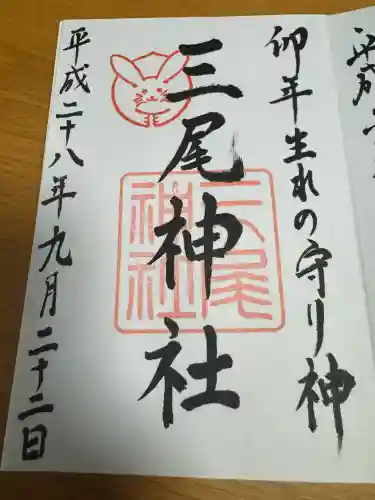 卯年生れの守り神
三尾神社
三尾神社
平成二十八年九月二十二日
平成